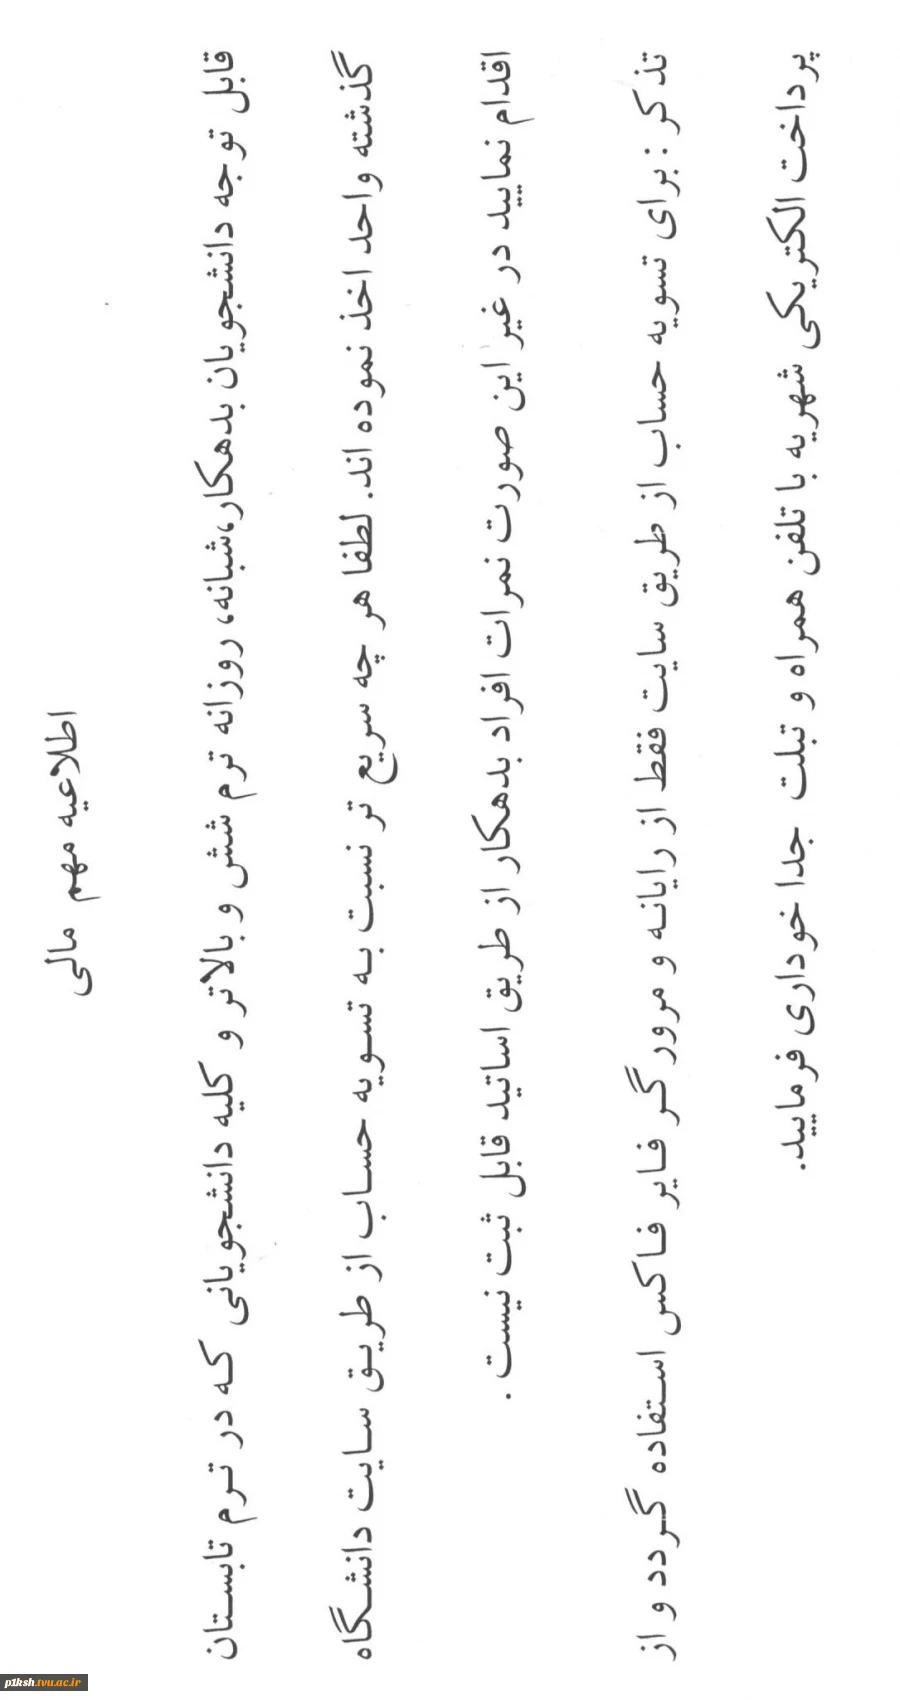 اطلاعیه مهم مالی
قابل توجه دانشجویان بدهکار،شبانه، روزانه ترم شش و بالاتر و کلیه دانشجویانی که در ترم تابستان
گذشته واحد اخذ نموده اند. لطفا هر چه سریع تر نسبت به تسویه حساب از طریق سایت دانشگاه
اقدام نمایید در غیر این صورت نمرات افراد بدهکار از طریق اساتید قابل ثبت نیست .
تذکر : برای تسویه حساب از طریق سایت فقط از رایانه و مرور گر فایر فاکس استفاده گردد و از
پرداخت الکتریکی شهریه با تلفن همراه و تبلت جدا خوداری فرمایید.
p1ksh.tvu.ac.ir